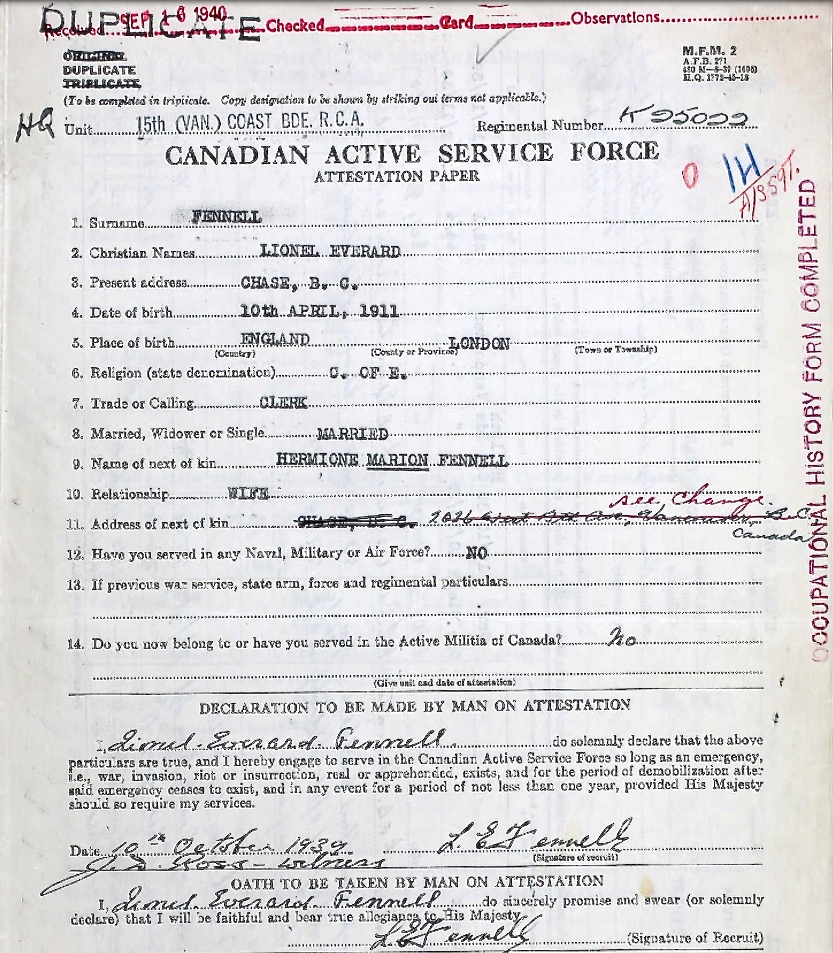 DUPLICATE
Received SEP 16 1940 Checked Card Observations
ORIGINAL
DUPLICATE
TRIPLICATE
M.F.M. 2
A.F.B. 271
H.Q. 1772-45-18
(To be completed in triplicate. Copy designation to be shown by striking out terms not applicable.)
HQ Unit 15th (VAN.) COAST BDE. R.C.A. Regimental Number K 95022
CANADIAN ACTIVE SERVICE FORCE
ATTESTATION PAPER
O 1H
OCCUPATIONAL HISTORY FORM COMPLETED
1. Surname FENNELL
2. Christian Names LIONEL EVERARD
3. Present address CHASE, B. C.
4. Date of birth 10th APRIL, 1911
5. Place of birth ENGLAND LONDON
(Country) (County or Province) (Town or Township)
6. Religion (state denomination) C. OF E.
7. Trade or Calling CLERK
8. Married, Widower or Single MARRIED
9. Name of next of kin HERMIONE MARION FENNELL
10. Relationship WIFE
see Change.
11. Address of next of kin CHASE, B. C. Vancouver, B.C.
Canada
12. Have you served in any Naval, Military or Air Force? NO
13. If previous war service, state arm, force and regimental particulars
14. Do you now belong to or have you served in the Active Militia of Canada? No
(Give unit and date of attestation)
DECLARATION TO BE MADE BY MAN ON ATTESTATION
I, Lionel Everard Fennell do solemnly declare that the above
particulars are true, and I hereby engage to serve in the Canadian Active Service Force so long as an emergency,
i.e., war, invasion, riot or insurrection, real or apprehended, exists, and for the period of demobilization after
said emergency ceases to exist, and in any event for a period of not less than one year, provided His Majesty
should so require my services.
Date 10th October 1939 L. E. Fennell
(Signature of recruit)
J. D. Ross - Witness
OATH TO BE TAKEN BY MAN ON ATTESTATION
I, Lionel Everard Fennell do sincerely promise and swear (or solemnly
declare) that I will be faithful and bear true allegiance to His Majesty
L. E. Fennell (Signature of Recruit)